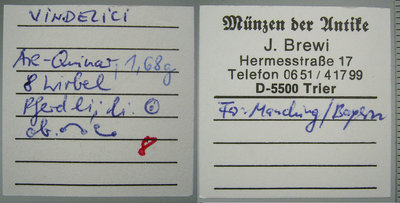 VINDELICI
AR-Quinar, 1,68g
8 Wirbel
Pferd li, li.
ob.
8
Münzen der Antike
J. Brewi
Hermesstraße 17
Telefon 0651/41799
D-5500 Trier
Fo: Manching/Bayern